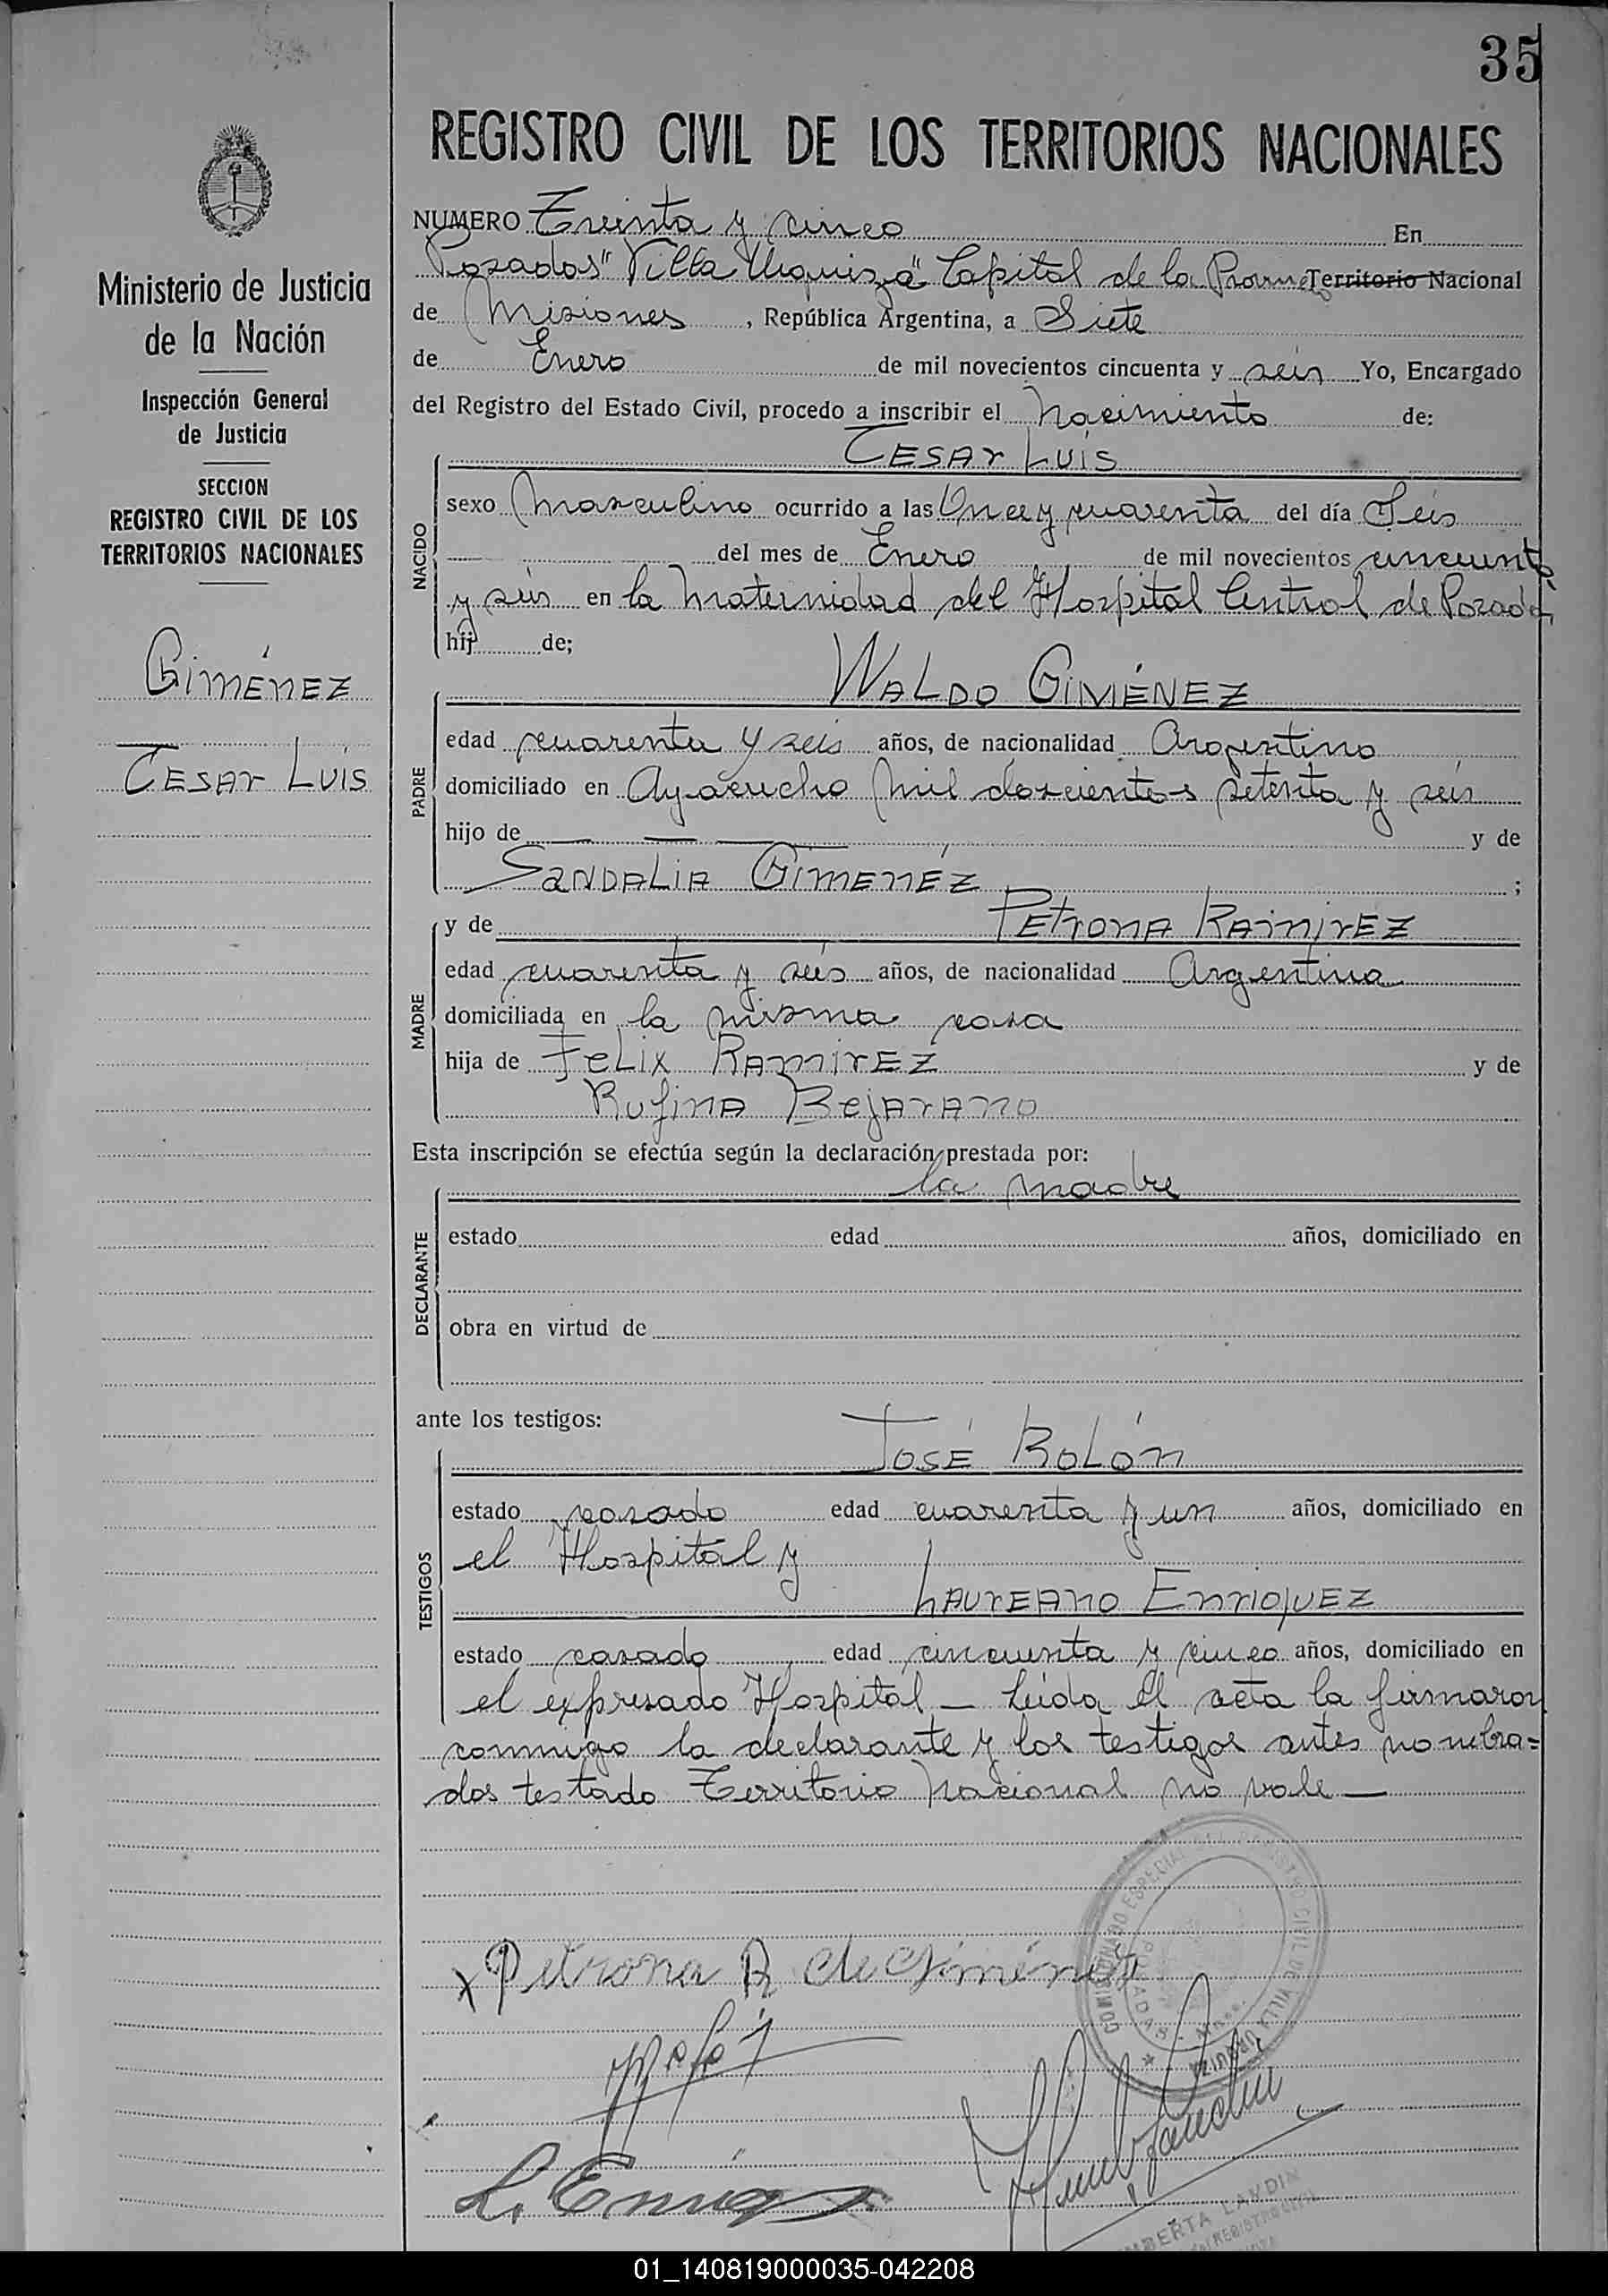 35
REGISTRO CIVIL DE LOS TERRITORIOS NACIONALES
Ministerio de Justicia
de la Nación
Inspección General
de Justicia
SECCION
REGISTRO CIVIL DE LOS
TERRITORIOS NACIONALES
GIMÉNEZ
CESAR LUIS
NUMERO Treinta y cinco En
Posadas "Villa Urquiza" Capital de la Provincia Territorio Nacional
de Misiones, República Argentina, a Siete
de Enero de mil novecientos cincuenta y seis Yo, Encargado
del Registro del Estado Civil, procedo a inscribir el Nacimiento de:
CESAR LUIS
NACIDO
sexo Masculino ocurrido a las Once y cuarenta del día Seis
del mes de Enero de mil novecientos cincuenta
y seis en la Maternidad del Hospital Central de Posadas,
hij de;
WALDO GIMÉNEZ
PADRE
edad cuarenta y seis años, de nacionalidad Argentino
domiciliado en Ayacucho mil doscientos setenta y seis
hijo de — — — y de
SANDALIA GIMENÉZ ;
y de PETRONA RAMIREZ
MADRE
edad cuarenta y seis años, de nacionalidad Argentina
domiciliada en la misma casa
hija de FELIX RAMIREZ y de
RUFINA BEJARANO
Esta inscripción se efectúa según la declaración prestada por:
la madre
DECLARANTE
estado edad años, domiciliado en
obra en virtud de
ante los testigos:
JOSÉ ROLÓN
TESTIGOS
estado casado edad cuarenta y un años, domiciliado en
el Hospital y
LAUREANO ENRIQUEZ
estado casado edad cincuenta y cinco años, domiciliado en
el expresado Hospital — Leida el acta la firmaron
conmigo la declarante y los testigos antes nombra=
dos testado Territorio Nacional no vale —
x Petrona R de Giménez
COMISIONADO ESPECIAL DEL REGISTRO CIVIL DE VILLA URQUIZA
POSADAS - Mnes.
L. Enriq
LANDIN
REGISTRO CIVIL
01_140819000035-042208